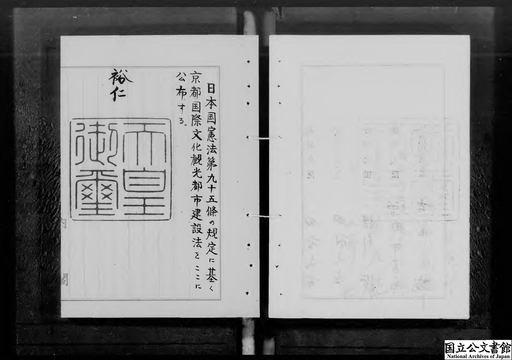 日本国憲法第九十五條の規定に基く
京都国際文化観光都市建設法をここに
公布する。
裕仁
天皇
御璽
内閣
国立公文書館
National Archives of Japan